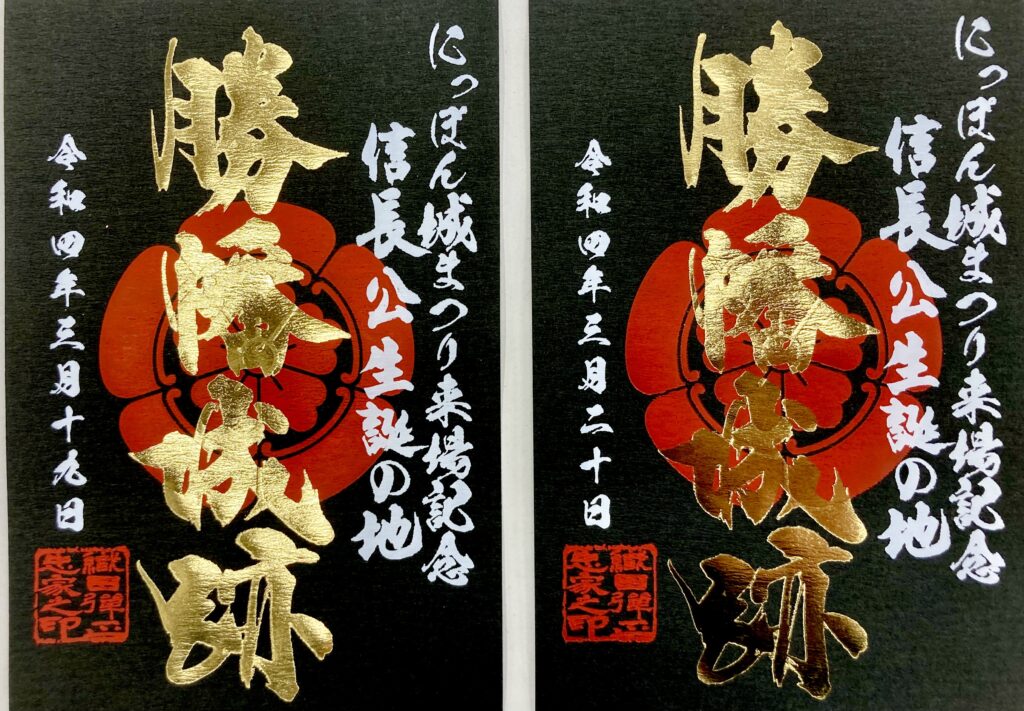 にっぽん城まつり来場記念
信長公生誕の地
勝幡城跡
令和四年三月十九日
織田弾正
忠家之印
にっぽん城まつり来場記念
信長公生誕の地
勝幡城跡
令和四年三月二十日
織田弾正
忠家之印